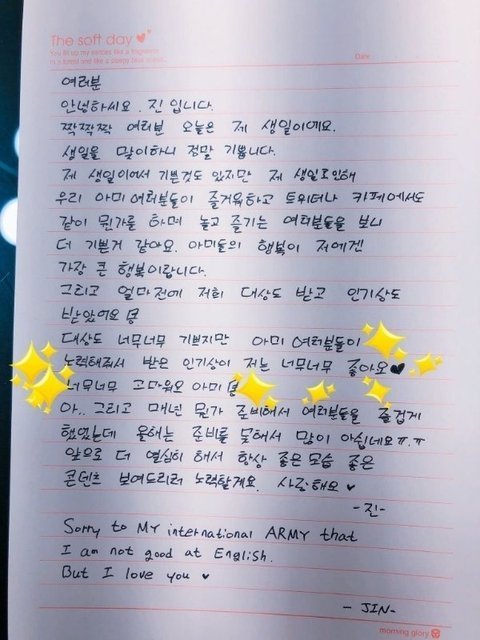 The soft day
You fill up my senses like a fragrance
in a forest and like a sleepy blue ocean.
Date
여러분
안녕하세요. 진 입니다.
짝짝짝 여러분 오늘은 제 생일이에요.
생일을 맞이하니 정말 기쁩니다.
제 생일이어서 기쁜것도 있지만 제 생일로인해
우리 아미 여러분들이 즐거워하고 트위터나 카페에서도
같이 뭔가를 하며 놀고 즐기는 여러분들을 보니
더 기쁜거 같아요. 아미들의 행복이 저에겐
가장 큰 행복이랍니다.
그리고 얼마전에 저희 대상도 받고 인기상도
받았어요
대상도 너무너무 기쁘지만 아미 여러분들이
노력해줘서 받은 인기상이 저는 너무너무 좋아요♥
너무너무 고마워요 아미
아.. 그리고 매년 뭔가 준비해서 여러분들을 즐겁게
했었는데 올해는 준비를 못해서 많이 아쉽네요ㅠ.ㅠ
앞으로 더 열심히 해서 항상 좋은모습 좋은
콘텐츠 보여드리려 노력할게요. 사랑해요 ♥
-진-
Sorry to MY international ARMY that
I am not good at English.
But I love you ♥
- JIN-
morning glory